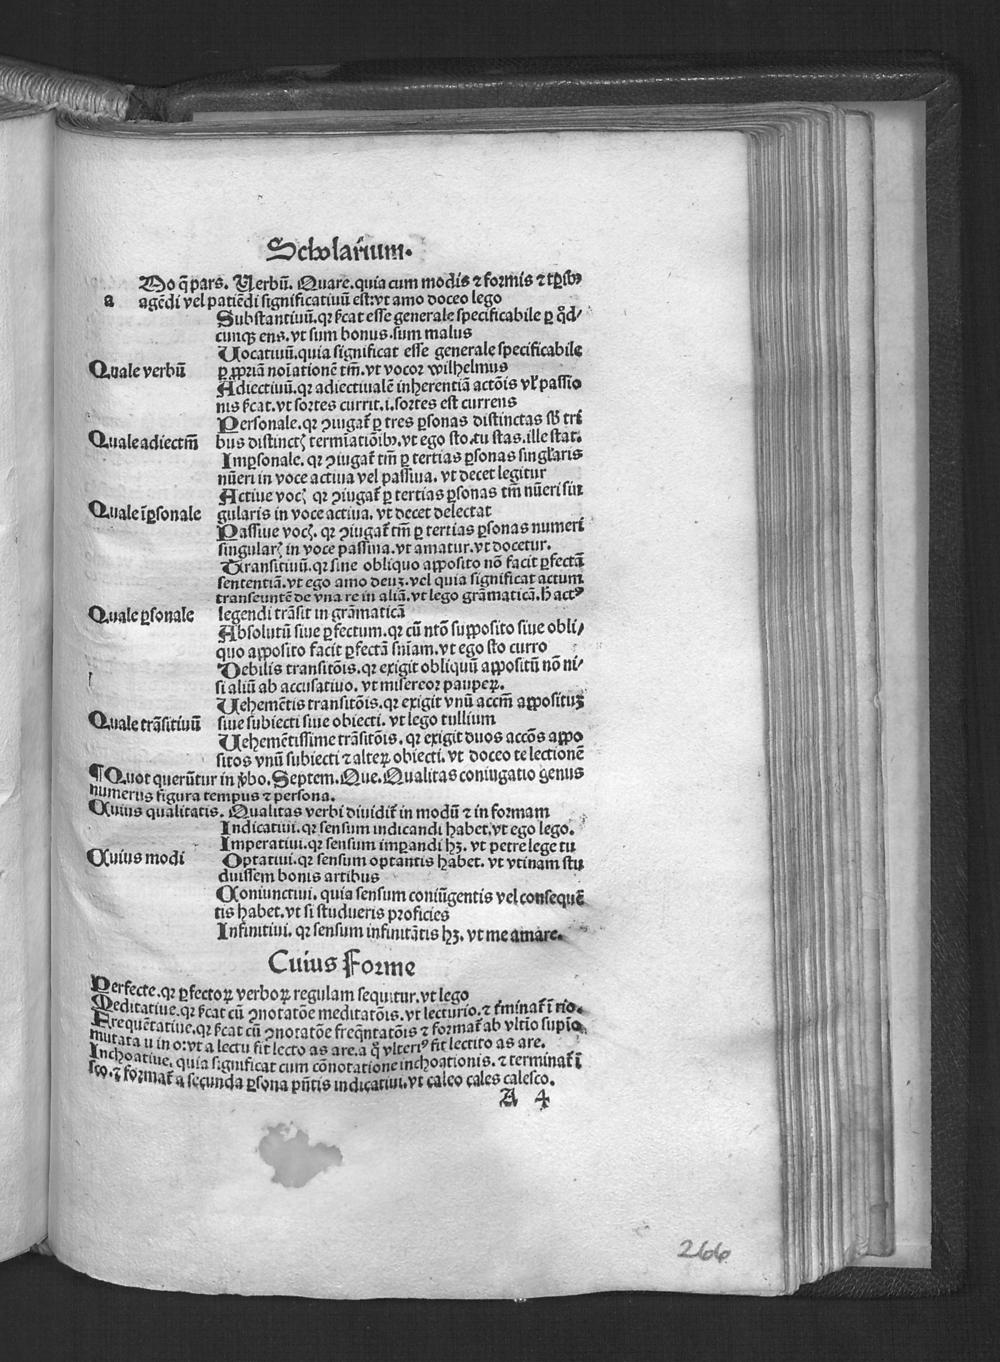 Scholariũm.
Do q̃ pars. Uerbũ. Quare. quia cum modis ⁊ formis ⁊ tꝑibꝰ
a agẽdi vel patiẽdi significatiuũ est: vt amo doceo lego
Substantiuũ. qꝛ ſicat esse generale specificabile ꝑ qd̾/
cunqꝫ ens. vt sum bonus. sum malus
Uocatiuũ. quia significat esse generale specificabile
Quale verbũ ꝑ ꝓpriã noĩationẽ tm̃. vt vocor wilhelmus
Adiectiuũ. qꝛ adiectiualẽ inherentiã actõis vl̕ passio
nis ſicat. vt sortes currit. i. sortes est currens
Personale. qꝛ ↄiugat̃ ꝑ tres ꝑsonas distinctas sb̾ tri
Quale adiectm̃ bus distinctꝭ termĩatiõibꝰ. vt ego sto. tu stas. ille stat.
Imꝑsonale. qꝛ ↄiugat̃ tm̃ ꝑ tertias ꝑsonas singl̕aris
nũeri in voce actiua vel passiua. vt decet legitur
Actiue vocꝭ qꝛ ↄiugat̃ ꝑ tertias ꝑsonas tm̃ nũeri sin
Quale ĩꝑsonale gularis in voce actiua. vt decet delectat
Passiue vocꝭ. qꝛ ↄiugat̃ tm̃ ꝑ tertias ꝑsonas numeri
singularꝭ in voce passiua. vt amatur. vt docetur.
Transitiuũ. qꝛ sine obliquo apposito nõ facit ꝑfectã
sententiã. vt ego amo deuꝫ. vel quia significat actum
transeuntẽ de vna re in aliã. vt lego grãmaticã. h̃ actꝰ
Quale ꝑsonale legendi trãsit in grãmaticã
Absolutũ siue ꝑfectum. qꝛ cũ ntõ supposito siue obli/
quo apposito facit ꝑfectã sniãm. vt ego sto curro
Debilis transitõis. qꝛ exigit obliquũ appositũ nõ ni/
si aliũ ab accusatiuo. vt misereor pauperꝝ.
Uehemẽtis transitõis. qꝛ exigit vnũ accm̃ appositũꝫ
Quale trãsitiuũ siue subiecti siue obiecti. vt lego tullium
Uehemẽtissime trãsitõis. qꝛ exigit duos accõs appo
sitos vnũ subiecti ⁊ alterꝝ obiecti. vt doceo te lectionẽ
¶ Quot querũtur in ꝟbo. Septem. Que. Qualitas coniugatio genus
numerus figura tempus ⁊ persona.
Cuius qualitatis. Qualitas verbi diuidit̃ in modũ ⁊ in formam
Indicatiui. qꝛ sensum indicandi habet. vt ego lego.
Imperatiui. qꝛ sensum imꝑandi hꝫ. vt petre lege tu
Cuius modi Optatiui. qꝛ sensum optantis habet. vt vtinam stu
duissem bonis artibus
Coniunctiui. quia sensum coniũgentis vel consequẽ
tis habet. vt si studueris proficies
Infinitiui. qꝛ sensum infinitãtis hꝫ. vt me amare.
Cuius Forme
Perfecte. qꝛ ꝑfectoꝝ verboꝝ regulam sequitur. vt lego
Meditatiue. qꝛ ſicat cũ ↄnotatõe meditatõis. vt lecturio. ⁊ t̃minat̃ ĩ rio.
Frequẽtatiue. qꝛ ſicat cũ ↄnotatõe freq̃ntatõis ⁊ format̃ ab vltĩo supĩo
mutata u in o: vt a lectu fit lecto as are. a q̃ vlteriꝰ fit lectito as are.
Inchoatiue. quia significat cum cõnotatione inchoationis. ⁊ terminat̃ ĩ
sco. ⁊ format̃ a secunda ꝑsona pñtis indicatiui. vt caleo cales calesco.
A 4
266